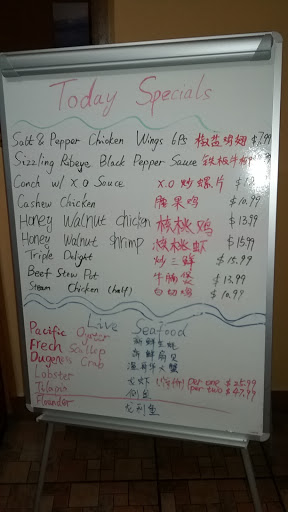 Today Specials
Salt & Pepper Chicken Wings 6Ps 椒盐鸡翅 $7.99
Sizzling Ribeye Black Pepper Sauce 铁板牛
Conch w/ X.O Sauce X.O 炒螺片
Cashew Chicken 腰果鸡 $10.99
Honey Walnut chicken 核桃鸡 $13.99
Honey Walnut shrimp 核桃虾 $15.99
Triple Delght 炒三鲜 $15.99
Beef Stew Pot 牛腩煲 $13.99
Steam Chicken (half) 白切鸡 $10.99
Live Seafood
Pacific Oyster 新鲜生蚝
Frech Scallop 新鲜扇贝
Dugeness Crab 温哥华大蟹
Lobster 龙虾 per one $25.99
per two $47.99
Tilapia
Flounder 龙利鱼